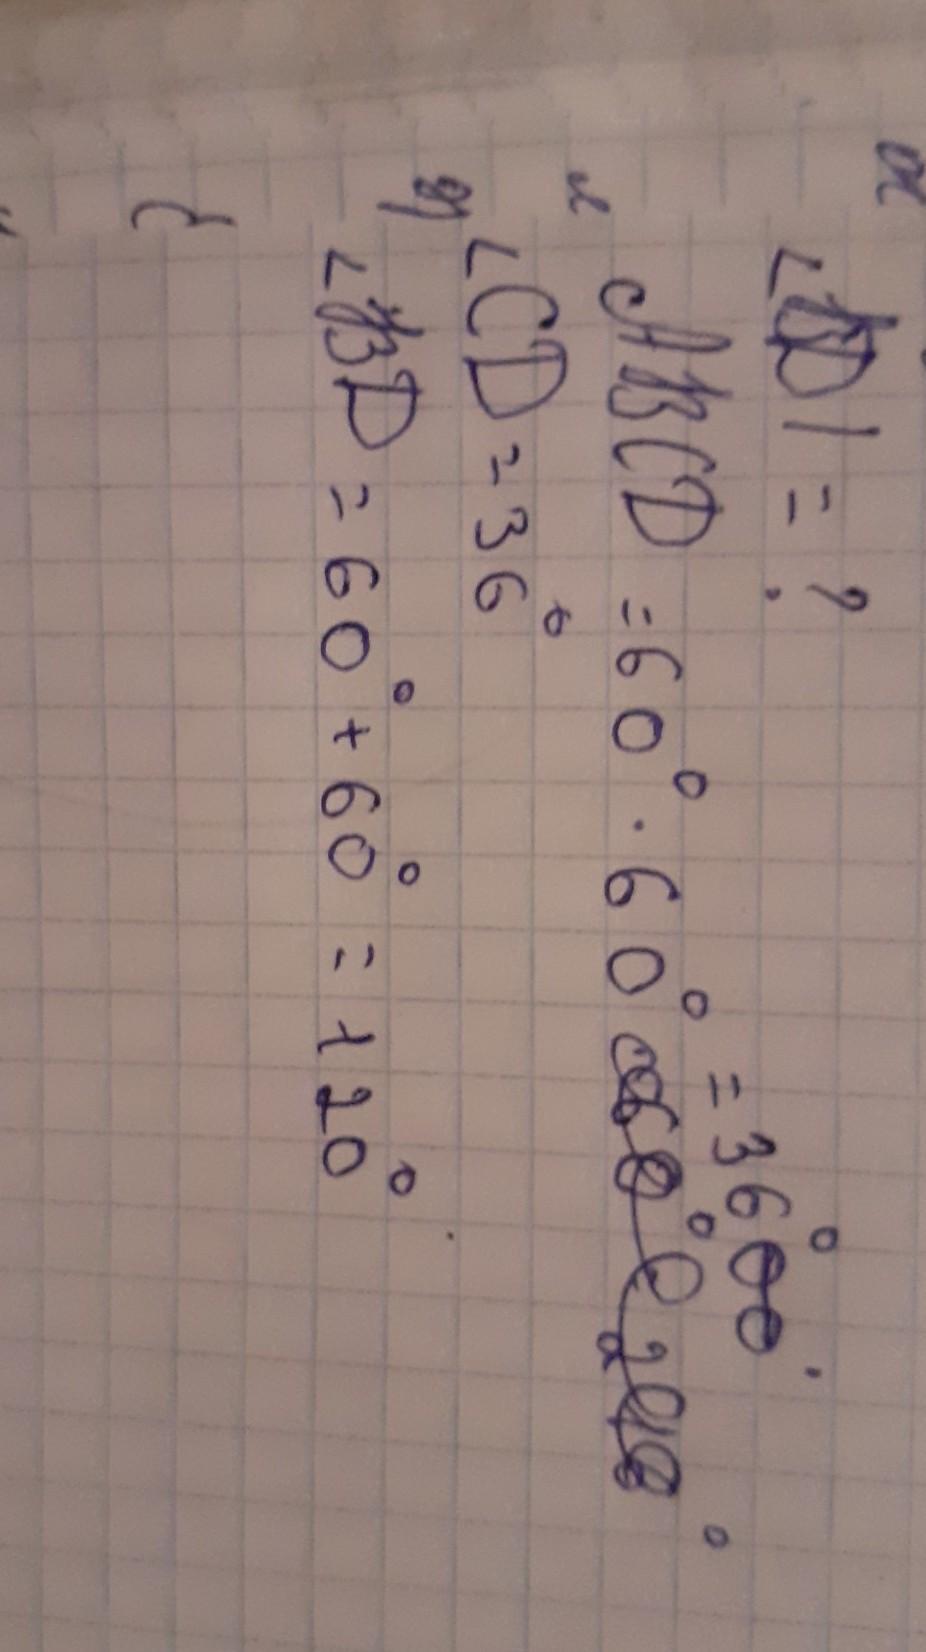 ∠BD1 = ?
ABCD = 60° · 60° = 36°
∠CD = 36°
∠BD = 60° + 60° = 120°